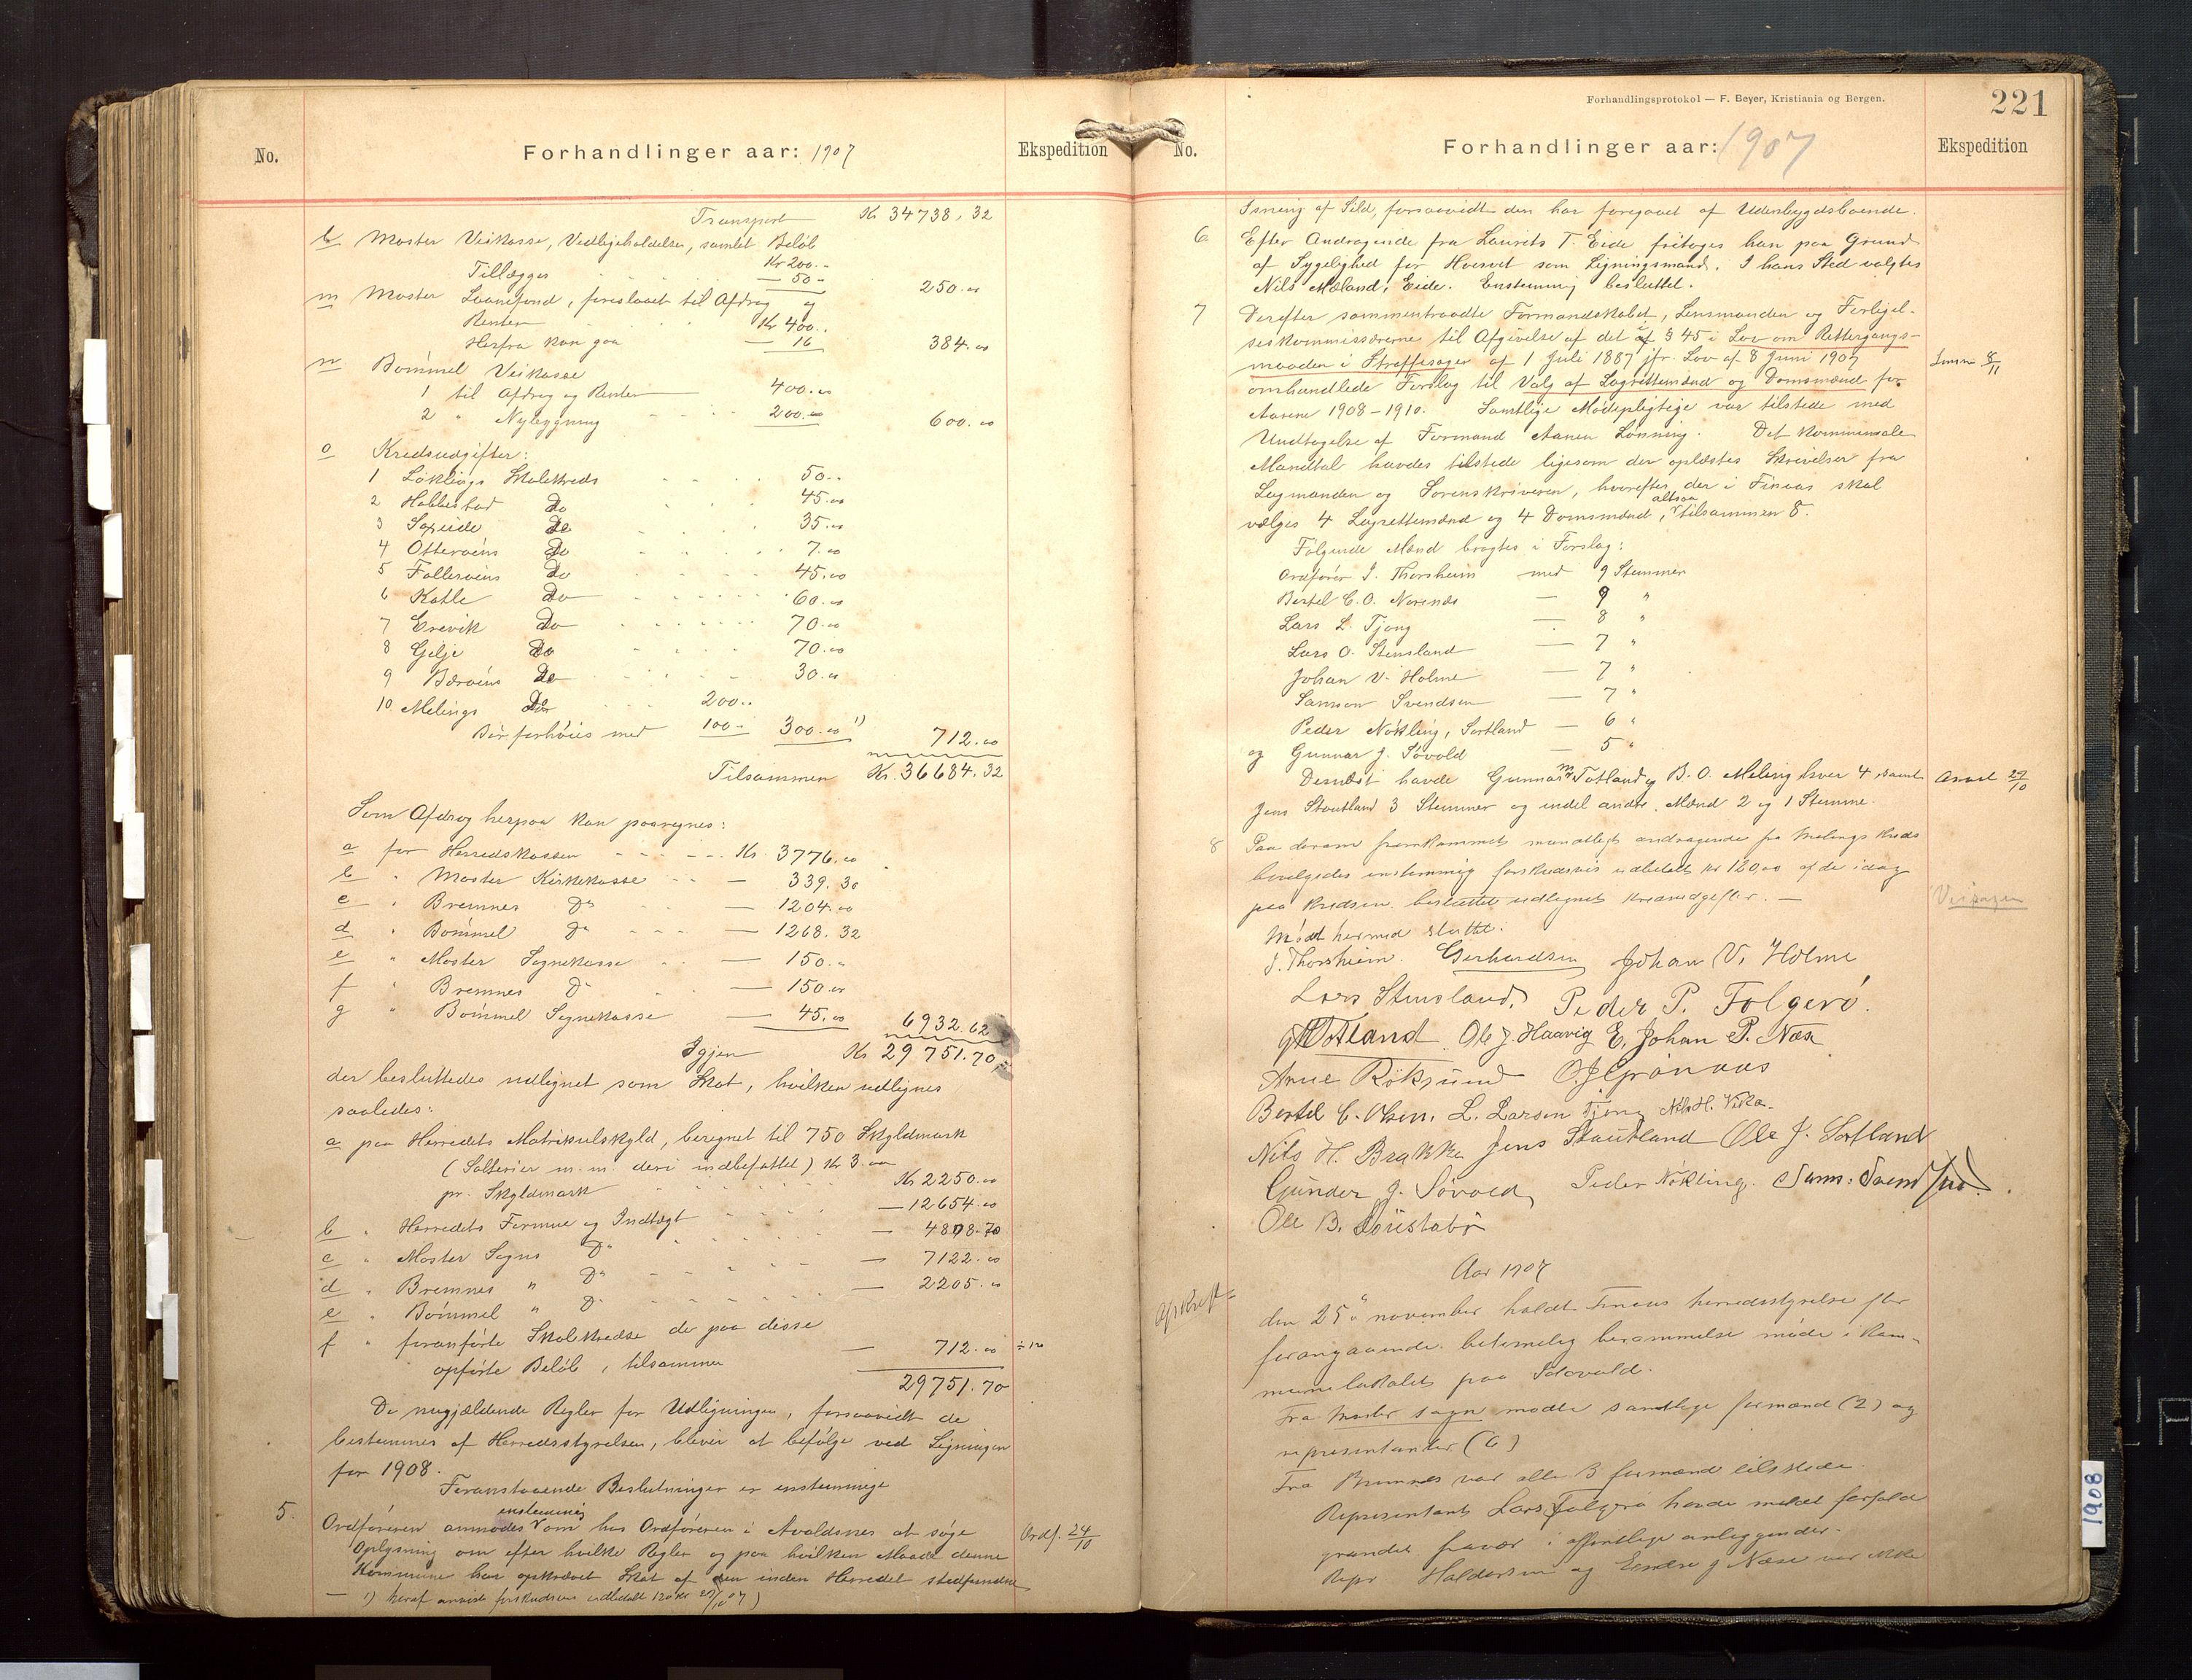 No.
Forhandlinger aar: 1907
Ekspedition
Transport Kr 34738,32
l Moster Veikasse, Vedligeholdelse, samlet Beløb
Kr 200.-
Tillægges - 50 - 250.00
m Moster Laanefond, foreslaaet til Afdrag og
Renter Kr 400..
Herfra kan gaa - 16 384.00
n Bømmel Veikasse
1 til Afdrag og Renter 400.00
2 " Nylægning 200.00 600.00
o Kredsudgifter:
1 Løklings Skolekreds 50..
2 Habbestad Do 45.00
3 Do 35.00
4 Otterøens Do 7.00
5 Folderøens Do 45.00
6 Katle Do 60.00
7 Erevik Do 70.00
8 Gilje Do 70.00
9 Bærøens Do 30.00
10 Melings Do 200..
Bør forhøies med 100.- 300.00 1) 712.00
Tilsammen Kr. 36684.32
Som Afdrag herpaa kan paaregnes:
a for Herredskassen Kr. 3776.00
b " Moster Kirkekasse — 339.30
c " Bremnes Do — 1204.00
d " Bømmel Do — 1268.32
e " Moster Sognekasse — 150.-
f " Bremnes Do — 150.00
g " Bømmel Sognekasse — 45.00 6932.62
Igjen Kr 29751.70
der besluttedes udlignet som Skat, hvilken udlignes
saaledes:
a paa Herredets Matrikulskyld, beregnet til 750 Skyldmark
(Salterier m.m. deri indbefattet) Kr 3.00
pr. Skyldmark Kr 2250.00
b " Herredets Formue og Indtægt — 12654.00
c " Moster Sogns Do — 4808.70
d " Bremnes " Do — 7122.00
e " Bømmel " Do — 2205.00
f " foranførte Skolekredse de paa disse
opførte Beløb, tilsammen — 712.00 ÷ 120
29751.70
De nugjældende Regler for Udligningen, forsaavidt de
bestemmes af Herredsstyrelsen, bliver at befølge ved Ligningen
for 1908.
Foranstaaende Beslutninger er enstemmige
5. Ordføreren anmodes enstemmig om hos Ordføreren i Avaldsnes at søge Ordf. 24/10
Oplysning om efter hvilke Regler og paa hvilken Maade denne
Kommune har opkrævet Skat af den inden Herredet stedfundne
— 1) heraf anvist forskudsvis udbetalt 120 kr 29/10 07)
Forhandlingsprotokol — F. Beyer, Kristiania og Bergen.
221
No.
Forhandlinger aar: 1907
Ekspedition
Isning af Sild, forsaavidt den har foregaaet af Udenbygdsboende.
6 Efter Andragende fra Laurits T. Eide fritages han paa Grund
af Sygelighed for Hvervet som Ligningsmand. I hans Sted valgtes
Nils Mæland, Eide. Enstemmig besluttet.
7 Derefter sammentraadte Formandskabet, Lensmanden og Forligel-
seskommissærerne til Afgivelse af det i § 45 i Lov om Rettergangs-
maaden i Straffesager af 1 Juli 1887 jfr. Lov af 8 Juni 1907
omhandlede Forslag til Valg af Lagrettemænd og Domsmænd for
Aarene 1908-1910. Samtlige Mødepligtige var tilstede med
Undtagelse af Formand Aanen Lønning. Det kommunale
Mandtal havdes tilstede ligesom der oplæstes Skrivelser fra
Lagmanden og Sorenskriveren, hvorefter der i Finaas skal
vælges 4 Lagrettemænd og 4 Domsmænd, altsaa tilsammen 8.
Følgende Mænd bragtes i Forslag:
Ordfører J. Thorsheim med 9 Stemmer
Bertel C. O. Norenæs — 9 "
Lars L. Tjong — 8 "
Lars O. Stensland — 7 "
Johan V. Holme — 7 "
Samson Svendsen — 7 "
Peder Nøkling, Sortland — 6 "
og Gunnar J. Søvold — 5 "
Dernæst havde Gunnar M Totland og B. O. Meling hver 4, samt
Jens Stautland 3 Stemmer og endel andre Mænd 2 og 1 Stemme.
8 Paa derom fremkommet mundtligt andragende fra Melings Kreds
bevilgedes enstemmig forskudsvis udbetalt kr 120,00 af de idag
paa Kredsen besluttet udlignet kredsudgifter. —
Mødet hermed sluttet.
J. Thorsheim. Gerhardsen Johan V. Holme
Lars Stensland. Peder P. Folgerø.
GMTotland. Ole J. Haavig E. Johan P. Næss
Arne Røksund O.J.Grønaas
Bertel C. Olsen. L. Larsen Tjong Nils H. Vika.
Nils H. Brakke Jens Stautland Ole J. Sortland
Gunder J. Søvold Peder Nøkling. Sams: Svendsen.
Ole B. Sønstabø
Aar 1907
Afskrift
den 25de november holdt Finaas herredsstyrelse efter
forangaaende betimelig berammelse møde i kom-
munelokalet paa Solvold.
Fra Moster sogn mødte samtlige formænd (2) og
representanter (6)
Fra Bremnes var alle 3 formænd tilstede.
Representant Lars Folgerø havde meldt forfald
grundet fravær i offentlige anliggender.
Repr Haldorsen og Endre J Næse var ikke
1908